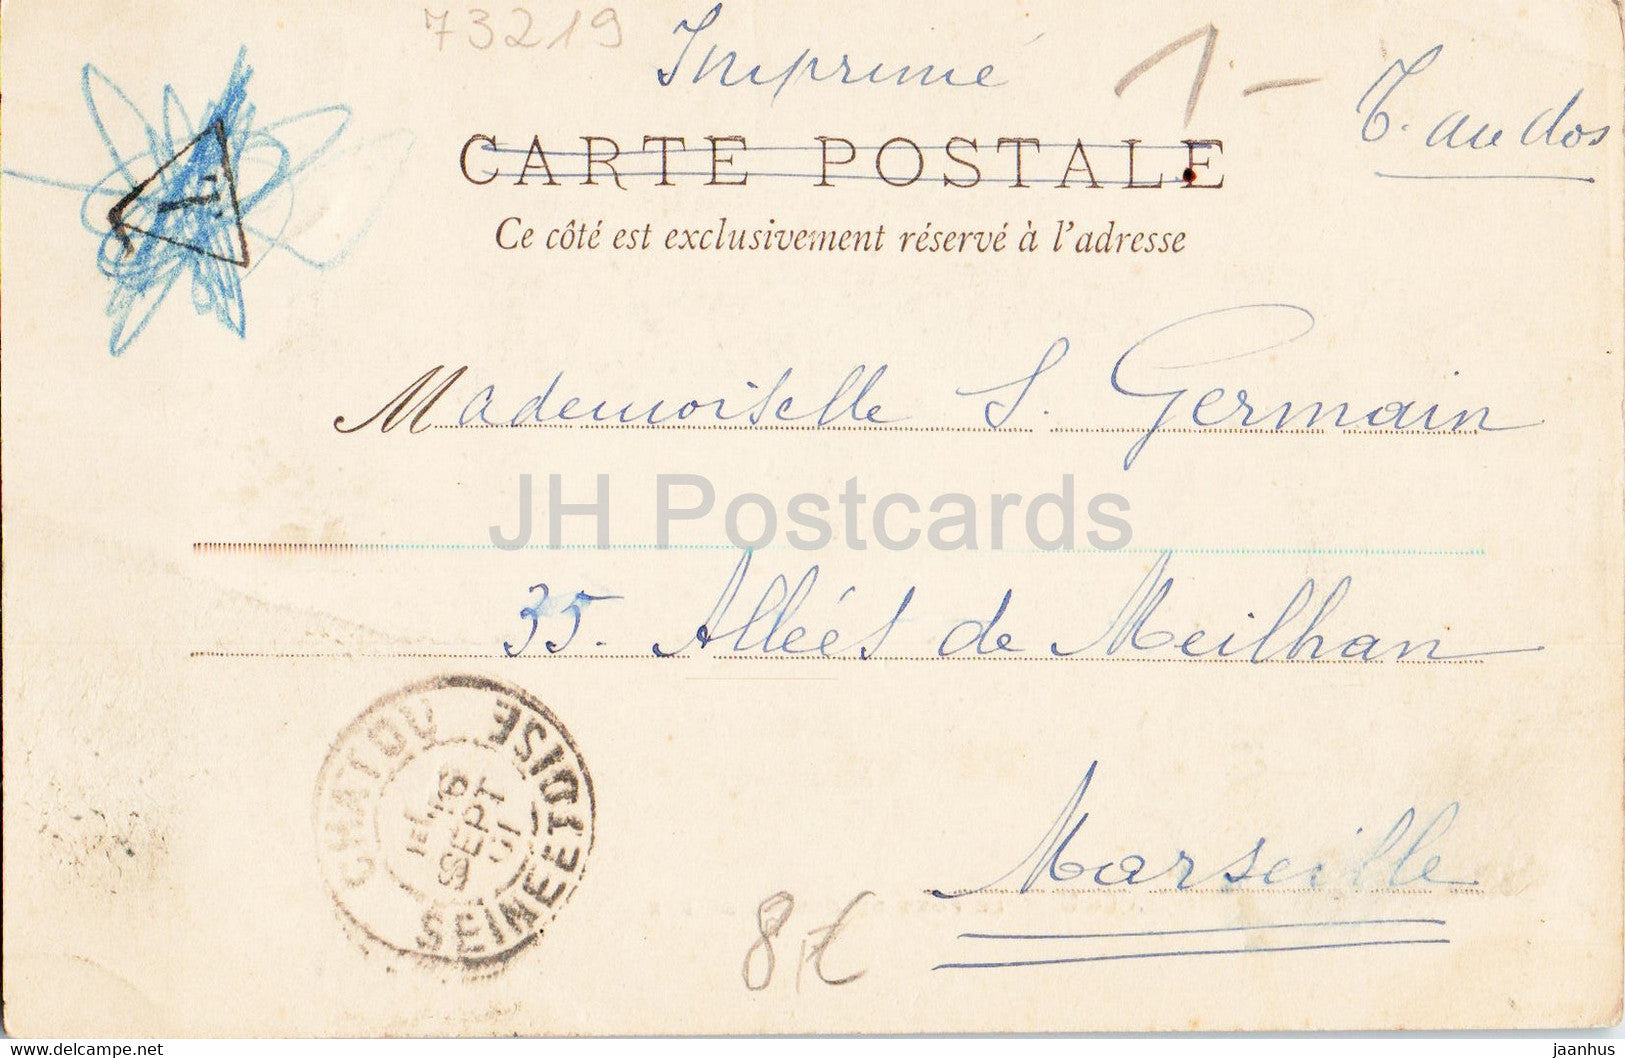 73219
Imprimé
1-
T. au dos
T
CARTE POSTALE
Ce côté est exclusivement réservé à l'adresse
Mademoiselle S. Germain
JH Postcards
35. Allées de Meilhan
CHATOU SEINE ET OISE
16
SEPT
01
Marseille
8,€
www.delcampe.net
jaanhus